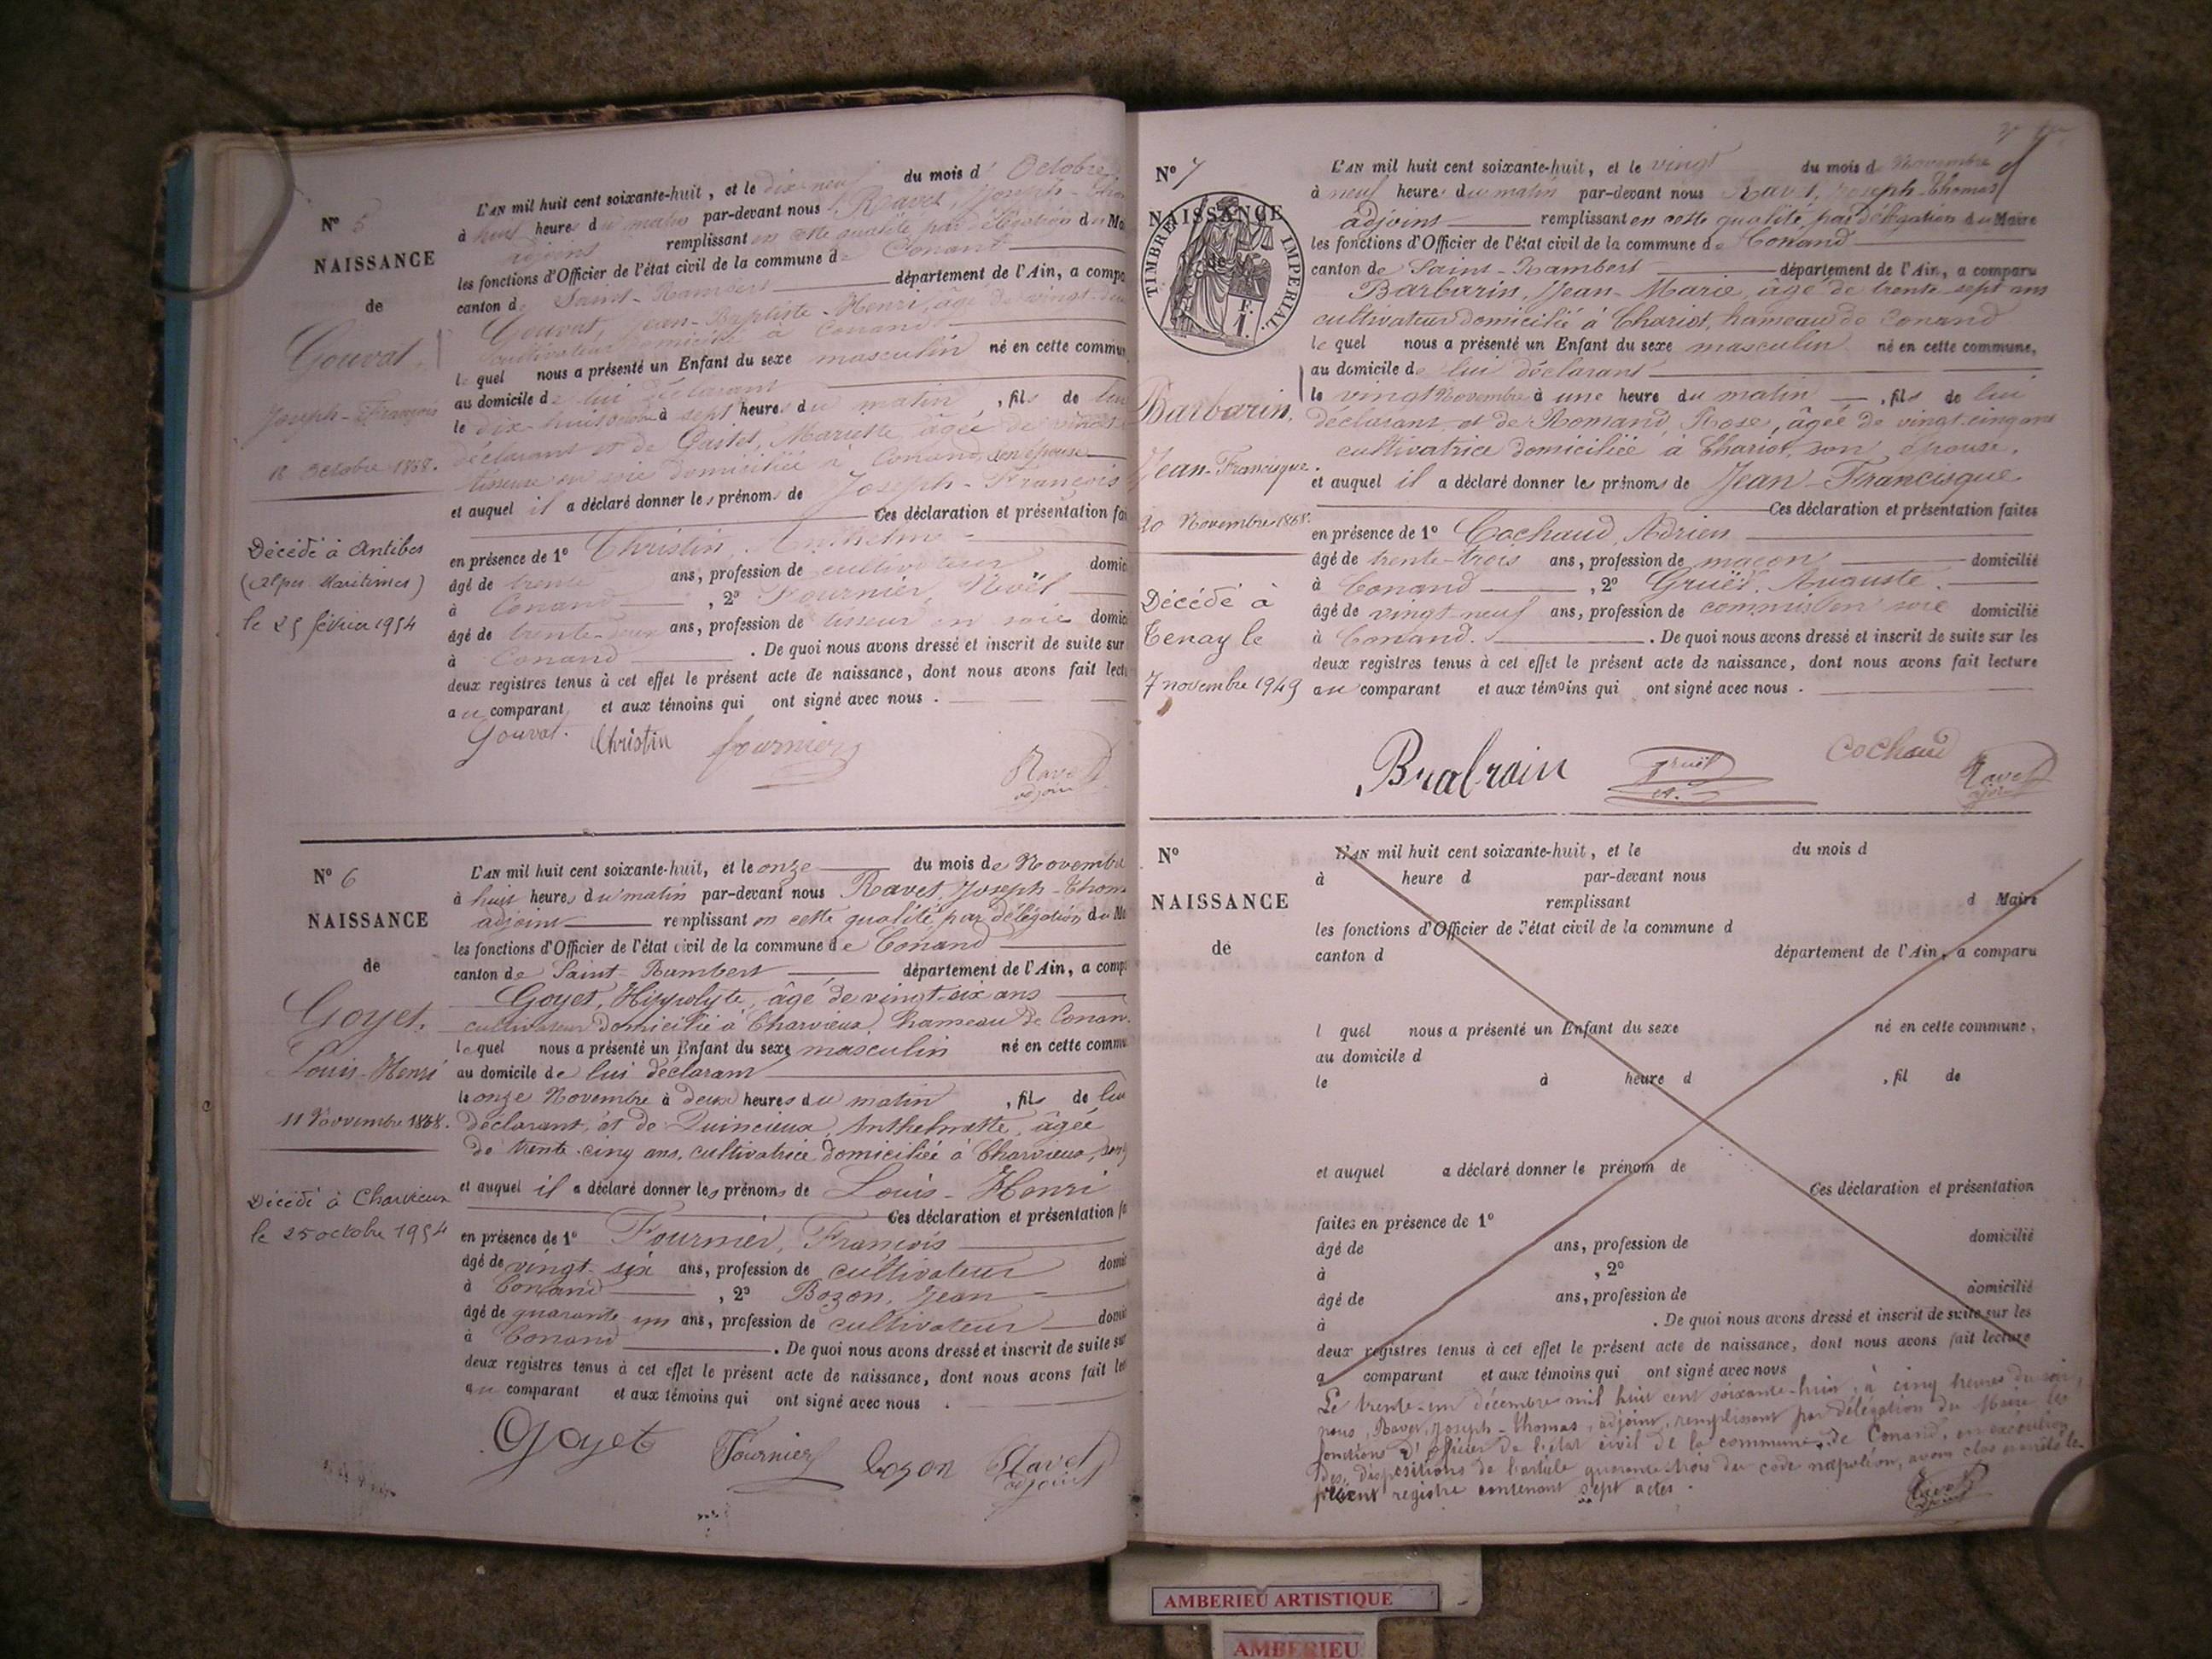 N° 5
NAISSANCE
de
Gouvat,
Joseph-François
18 Octobre 1868.
Décédé à Antibes
(Alpes Maritimes)
le 25 février 1954
L'AN mil huit cent soixante-huit, et le dix-neuf du mois d' Octobre
à neuf heures du matin par-devant nous Ravet, Joseph-Tho
adjoint remplissant en cette qualité, par délégation du Ma
les fonctions d'Officier de l'état civil de la commune de Conand
canton de Saint-Rambert département de l'Ain, a compa
Gouvat, Jean-Baptiste-Henri, âgé de vingt-
cultivateur domicilié à Conand
lequel nous a présenté un Enfant du sexe masculin né en cette commun
au domicile de lui déclarant
le dix-huit Octobre à sept heures du matin, fils de lui
déclarant et de Mariette, âgée de
tisseuse en soie domiciliée à Conand, son épouse
et auquel il a déclaré donner les prénoms de Joseph-François
Ces déclaration et présentation fai
en présence de 1° Christin, Anthelme
âgé de trente ans, profession de cultivateur domic
à Conand, 2° Fournier, Noël
âgé de trente-deux ans, profession de tisseur en soie domic
à Conand. De quoi nous avons dressé et inscrit de suite sur
deux registres tenus à cet effet le présent acte de naissance, dont nous avons fait lect
au comparant et aux témoins qui ont signé avec nous.
Gouvat. Christin fournier
Ravet
adjoint
N° 6
NAISSANCE
de
Goyet,
Louis-Henri
11 Novembre 1868.
Décédé à Charvieux
le 25 octobre 1954
L'AN mil huit cent soixante-huit, et le onze du mois de Novembre
à huit heures du matin par-devant nous Ravet, Joseph-Thom
adjoint remplissant en cette qualité, par délégation du Ma
les fonctions d'Officier de l'état civil de la commune de Conand
canton de Saint-Rambert département de l'Ain, a compa
Goyet, Hippolyte, âgé de vingt-six ans
cultivateur domicilié à Charvieux, hameau de Conan
lequel nous a présenté un Enfant du sexe masculin né en cette commu
au domicile de lui déclarant
le onze Novembre à deux heures du matin, fils de lui
déclarant, et de Quincieux, Anthelmette, âgée
de trente-cinq ans, cultivatrice domiciliée à Charvieux, son
et auquel il a déclaré donner les prénoms de Louis-Henri
Ces déclaration et présentation fa
en présence de 1° Fournier, François
âgé de vingt-six ans, profession de cultivateur domic
à Conand, 2° Bozon, Jean
âgé de quarante un ans, profession de cultivateur domic
à Conand. De quoi nous avons dressé et inscrit de suite sur
deux registres tenus à cet effet le présent acte de naissance, dont nous avons fait lec
au comparant et aux témoins qui ont signé avec nous.
Goyet Fournier bozon Ravet
adjoint
N° 7
NAISSANCE
de
TIMBRE IMPERIAL
1 F.
Barbarin,
Jean-Francisque.
20 Novembre 1868.
Décédé à
Tenay le
7 novembre 1949
L'AN mil huit cent soixante-huit, et le vingt du mois de Novembre
à neuf heures du matin par-devant nous Ravet, Joseph-Thomas
adjoint remplissant en cette qualité, par délégation du Maire
les fonctions d'Officier de l'état civil de la commune de Conand
canton de Saint-Rambert département de l'Ain, a comparu
Barbarin, Jean-Marie, âgé de trente-sept ans
cultivateur domicilié à Chariot, hameau de Conand
lequel nous a présenté un Enfant du sexe masculin né en cette commune,
au domicile de lui déclarant
le vingt Novembre à une heure du matin, fils de lui
déclarant et de Romand, Rose, âgée de vingt-cinq ans
cultivatrice domiciliée à Chariot, son épouse.
et auquel il a déclaré donner les prénoms de Jean-Francisque
Ces déclaration et présentation faites
en présence de 1° Cochaud, Adrien
âgé de trente-trois ans, profession de maçon domicilié
à Conand, 2° Gruël, Auguste.
âgé de vingt-neuf ans, profession de commis en soie domicilié
à Conand. De quoi nous avons dressé et inscrit de suite sur les
deux registres tenus à cet effet le présent acte de naissance, dont nous avons fait lecture
au comparant et aux témoins qui ont signé avec nous.
Brabrain Gruël A. Cochaud Ravet
adjoint
N°
NAISSANCE
de
L'AN mil huit cent soixante-huit, et le du mois d
à heure d par-devant nous
remplissant d Maire
les fonctions d'Officier de l'état civil de la commune d
canton d département de l'Ain, a comparu
l quel nous a présenté un Enfant du sexe né en cette commune,
au domicile d
le à heure d , fil de
et auquel a déclaré donner le prénom de
Ces déclaration et présentation
faites en présence de 1°
âgé de ans, profession de domicilié
à , 2°
âgé de ans, profession de domicilié
à . De quoi nous avons dressé et inscrit de suite sur les
deux registres tenus à cet effet le présent acte de naissance, dont nous avons fait lecture
a comparant et aux témoins qui ont signé avec nous
Le trente-un décembre mil huit cent soixante-huit, à cinq heures du soir,
nous, Ravet, Joseph-Thomas, adjoint, remplissant par délégation du Maire les
fonctions d'officier de l'état civil de la commune de Conand, en exécution
des dispositions de l'article quarante-trois du code napoléon, avons clos arrêté le
présent registre contenant sept actes.
Ravet
AMBERIEU ARTISTIQUE
AMBERIEU